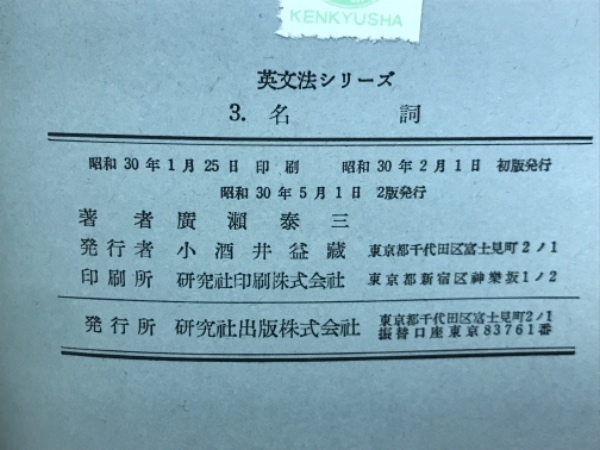 KENKYUSHA
英文法シリーズ
3. 名詞
昭和30年1月25日 印刷 昭和30年2月1日 初版発行
昭和30年5月1日 2版発行
著者 廣瀬泰三
発行者 小酒井益藏 東京都千代田区富士見町2ノ1
印刷所 研究社印刷株式会社 東京都新宿区神樂坂1ノ2
発行所 研究社出版株式会社 東京都千代田区富士見町2ノ1
振替口座東京83761番